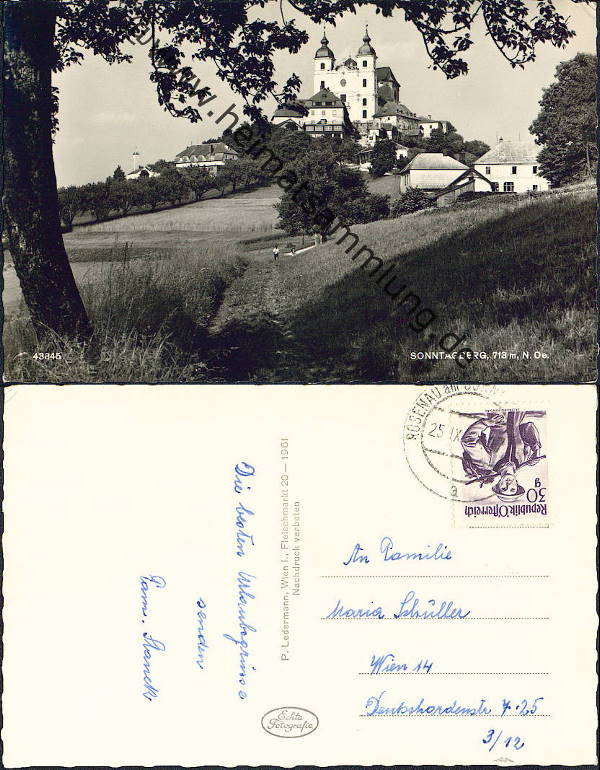 www.heimatsammlung.de
43845
SONNTAGBERG, 713 m, N. Oe.
ROSENAU am SONN
25.IX
a
30 g
Republik Österreich
P. Ledermann, Wien I., Fleischmarkt 20 — 1951
Nachdruck verboten
Echte
Fotografie
Die besten Urlaubsgrüsse
senden
Fam. Stanek
An Familie
Maria Schüller
Wien 14
Deutschordenstr 7-25
3/12